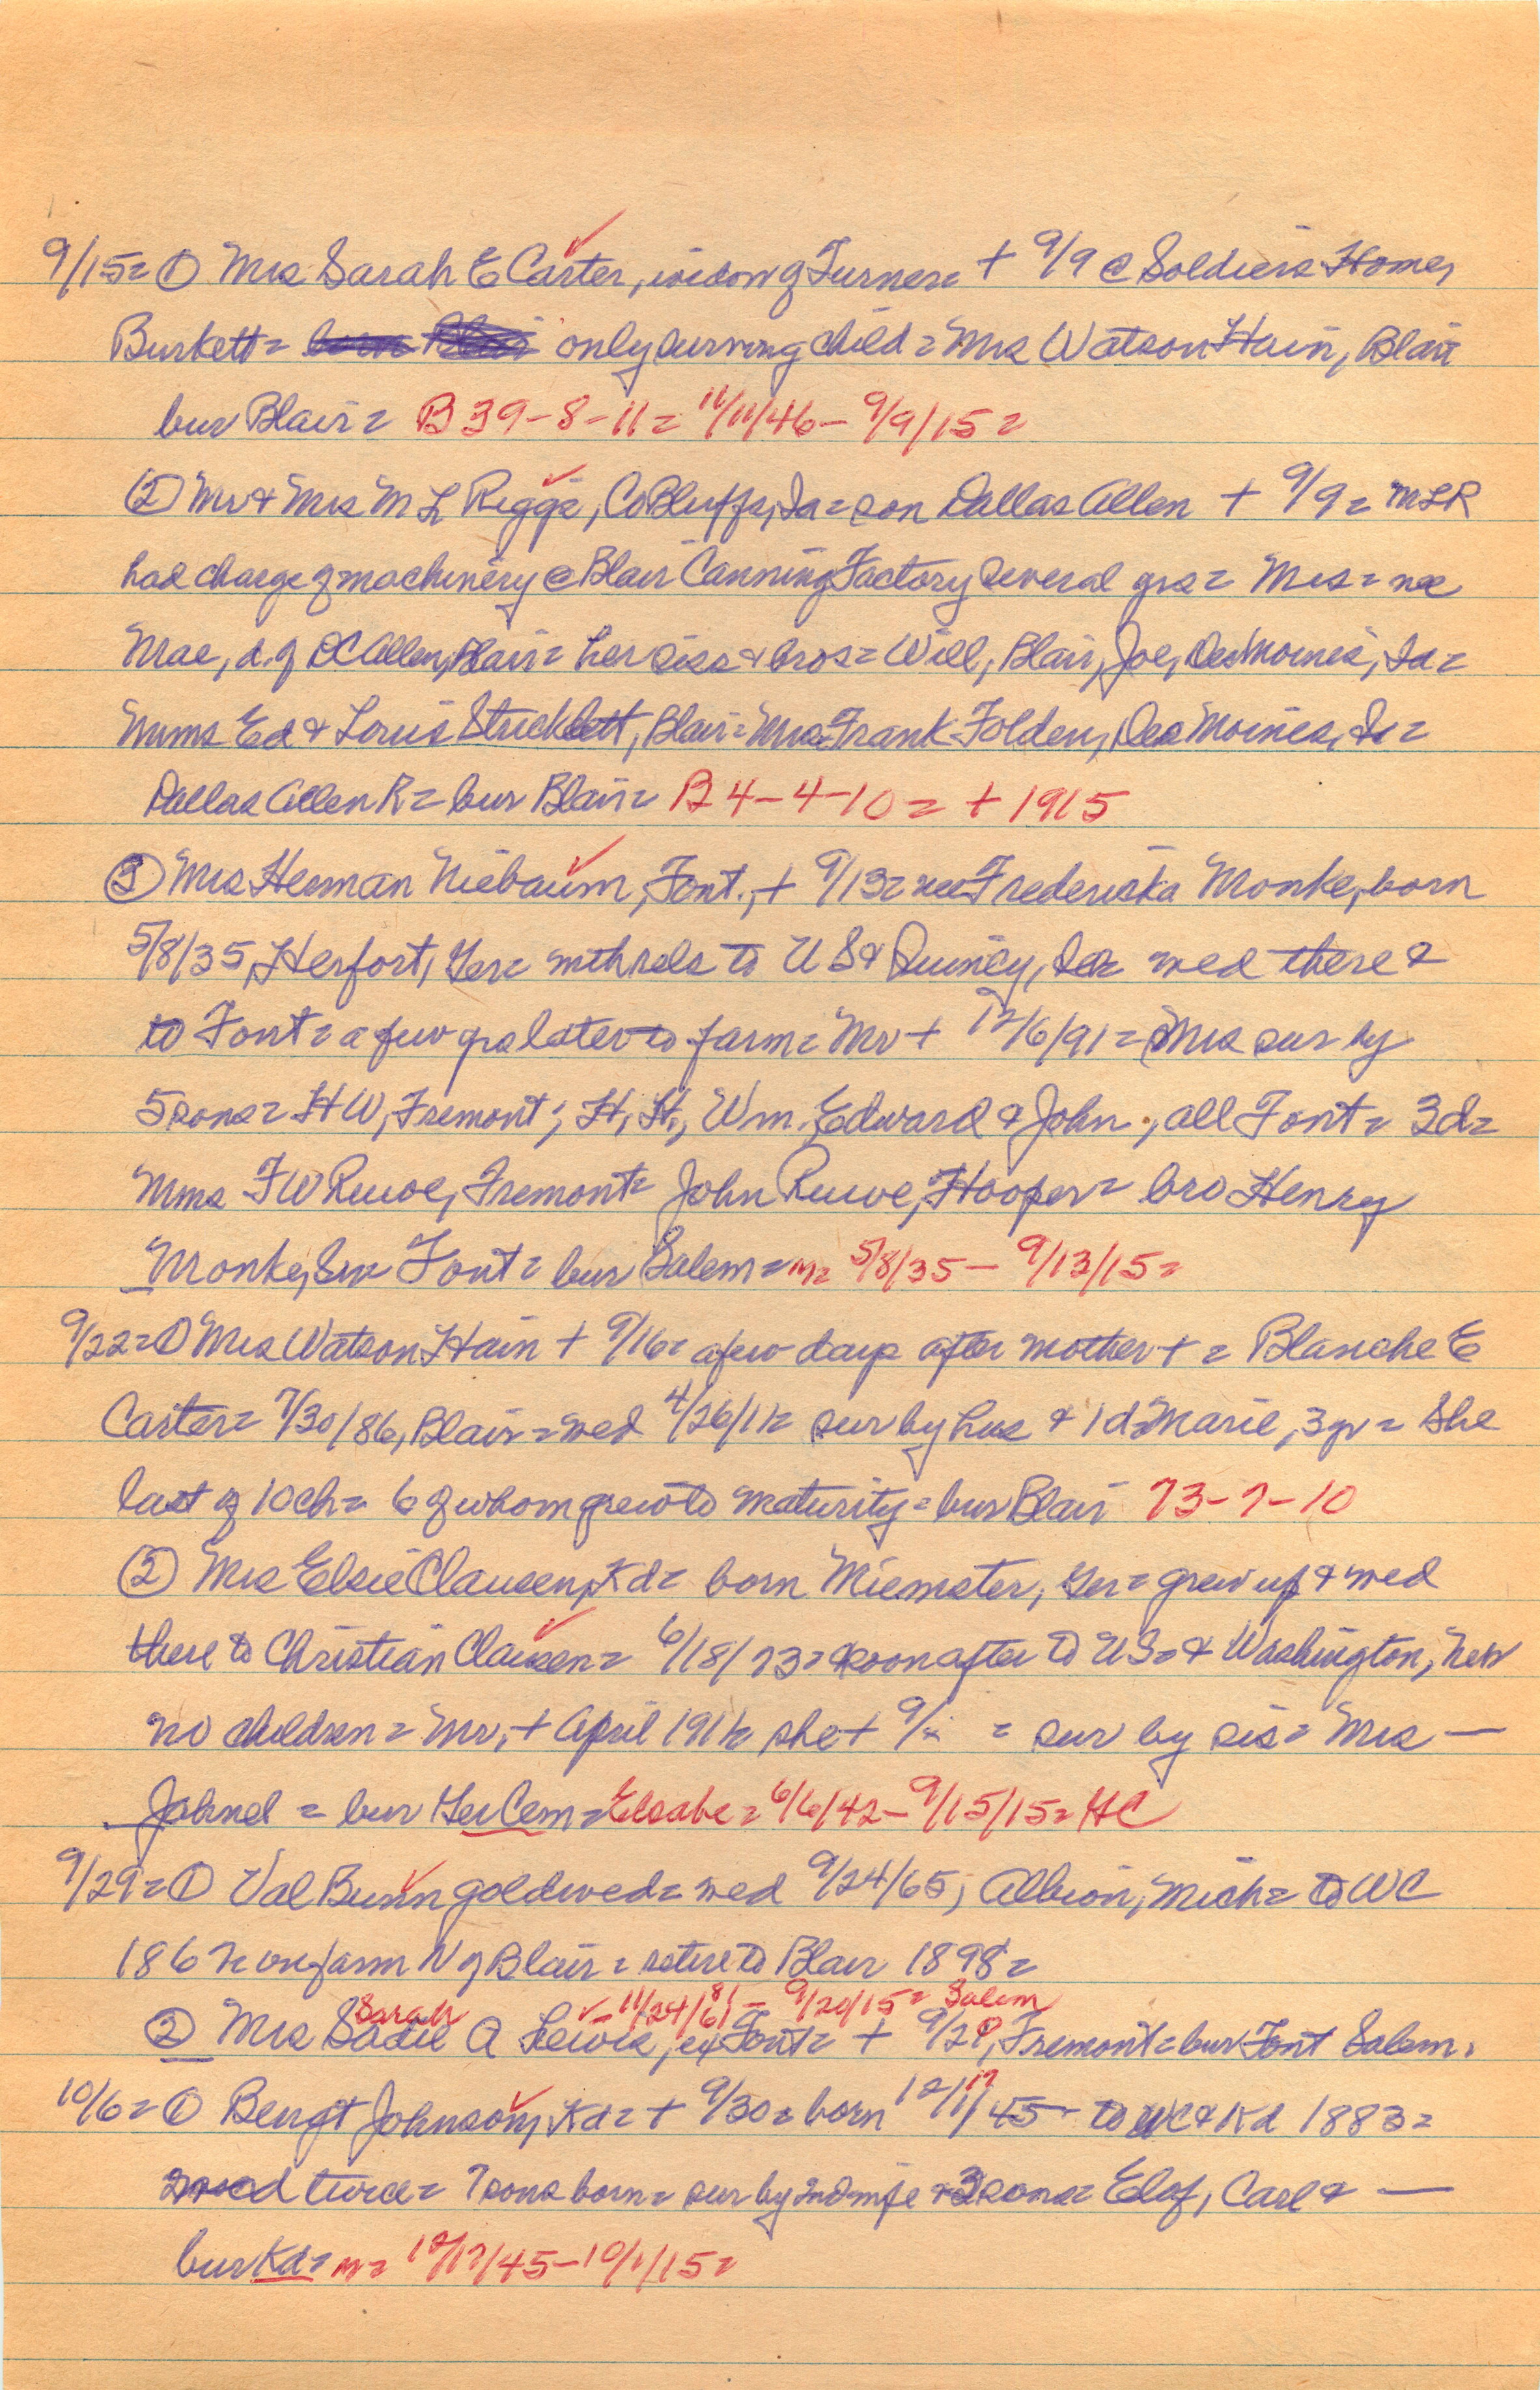 9/15= ① Mrs Sarah E Carter, widow of Turner= + 9/9 @ Soldiers Home,
Burkett= born Blair only surviving child= Mrs Watson Hain, Blair
bur Blair= B 39-8-11= 11/11/46- 9/9/15=
② Mr & Mrs M L Riggs, Co Bluffs, Ia= son Dallas Allen + 9/9= MLR
had charge of machinery @ Blair Canning Factory several yrs= Mrs= nee
Mae, d. of DC Allen, Blair= her siss & bros= Will, Blair, Joe, Des Moines, Ia=
Mmes Ed & Louis Stricklett, Blair= Mrs Frank Folden, Des Moines, Ia=
Dallas Allen R= bur Blair= B 4-4-10= + 1915
③ Mrs Herman Niebaum, Font., + 9/13= nee Frederiska Monke, born
5/8/35, Herfort, Ger= with rels to US & Quincy, wed there &
to Font= a few yrs later to farm= Mr + 12/6/91= Mrs sur by
5 sons= HW, Fremont; H, H, Wm. Edward & John., all Font= 3d=
Mms FW Ruwe, Fremont= John Ruwe, Hooper= bro Henry
Monke, Sr= Font= bur Salem= m= 5/8/35- 9/13/15=
9/22= ① Mrs Watson Hain + 9/16= a few days after mother + = Blanche E
Carter= 7/30/86, Blair= wed 4/26/11= sur by hus & 1d= Marie, 3 yr= She
last of 10 ch= 6 of whom grew to maturity= bur Blair 73-7-10
② Mrs Elsie Clausen, Kd= born Miemster, Ger= grew up & wed
there to Christian Clausen= 6/18/73= soon after to US= & Washington, Neb
no children= Mr, + April 1911= she + 9/ = sur by sis= Mrs —
Jahnel = bur Ger Cem= Elsabe= 6/6/42- 9/15/15= HC
9/29= ① Val Bunn gold wed= wed 9/24/65, Albion, Mich= to WC
1867= on farm N of Blair= retire to Blair 1898=
Sarah 11/24/61 81 - 9/20/15= Salem
② Mrs Sadie A Lewis, ex Font= + 9/20, Fremont= bur Font Salem.
10/6= ① Bengt Johnson, Kd= + 9/30= born 12/17/45- to WC & Kd 1883=
wed twice= 7 sons born= sur by 2nd wife & 3 sons= Elof, Carl & —
bur Kd= m= 12/17/45-10/1/15=